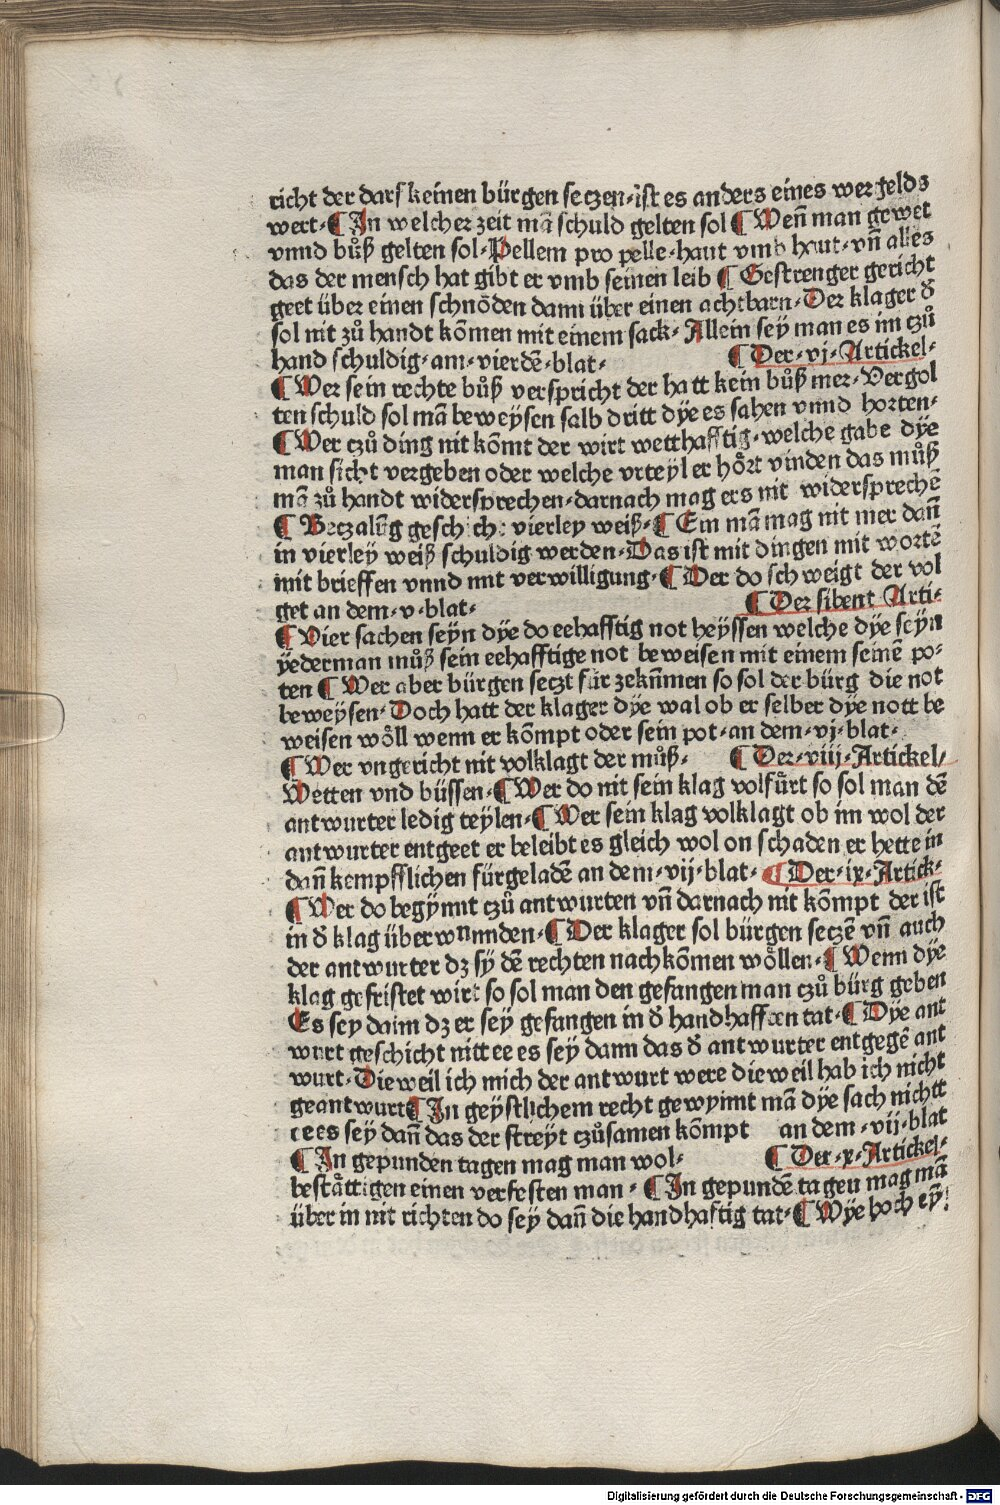 richt der darf keinen bürgen seczen·ist es anders eines wergelds
wert·¶ In welcher zeit mā schuld gelten sol ¶ Weñ man gewet
vnnd bůß gelten sol·Pellem pro pelle·haut vmb haut·vñ alles
das der mensch hat gibt er vmb seinen leib ¶ Gestrenger gericht
geet über einen schnöden dann über einen achtbarn·Der klager d̄
sol nit zů handt kömen mit einem sack·Allein sey man es im czů
hand schuldig·am·vierdē·blat· ¶ Der·vj·Artickel·
¶ Wer sein rechte bůß verspricht der hatt kein bůß mer·Vergol
ten schuld sol mā beweysen salb dritt dÿe es sahen vnnd horten·
¶ Wer czů ding nit kōmt der wirt wetthafftig·welche gabe dÿe
man sicht vergeben oder welche vrteyl er hőrt vinden das můß
mā zů handt widersprechen·darnach mag ers nit widersprechē
¶ Beczalūg geschicht vierley weiß·¶ Ein mā mag nit mer dañ
in vierley weiß schuldig werden·Das ist mit dingen mit wortē
mit brieffen vnnd mit verwilligung·¶ Der do schweigt der vol
get an dem·v·blat· ¶ Der sibent Arti·
¶ Vier sachen seÿn dÿe do eehafftig not heÿssen welche dÿe seÿn
ÿederman můß sein eehafftige not beweisen mit einem seinē po⸗
ten ¶ Wer aber bürgen seczt für zekūmen so sol der bürg die not
beweÿsen·Doch hatt der klager dÿe wal ob er selber dÿe nott be
weisen wöll wenn er kōmpt oder sein pot·an dem·vj·blat·
¶ Wer vngericht nit volklagt der můß· ¶ Der·viij·Artickel/
Wetten vnd büssen·¶ Wer do nit sein klag volfürt so sol man dē
antwurter ledig teylen·¶ Wer sein klag volklagt ob im wol der
antwurter entgeet er beleibt es gleich wol on schaden er hette in
dañ kempfflichen fürgeladē an dem·vij·blat· ¶ Der·ix·Artick·
¶ Wer do begÿnnt czů antwurten vñ darnach nit kōmpt der ist
in d̄ klag überwunnden·¶ Der klager sol bürgen seczē vñ auch
der antwurter dz sÿ dē rechten nachkōmen wöllen·¶ Wenn dÿe
klag gefristet wirt so sol man den gefangen man czů bürg geben
Es sey dann dz er sey gefangen in d̄ handhafften tat·¶ Dÿe ant
wurt geschicht nitt ee es sey dann das d̄ antwurter entgegē ant
wurt·Die weil ich mich der antwurt were die weil hab ich nicht
geantwurt ¶ In geÿstlichem recht gewÿnnt mā dÿe sach nichtt
e es sey dañ das der streÿt czůsamen kōmpt an dem·vij·blat
¶ In gepunden tagen mag man wol· ¶ Der·x·Artickel·
bestättigen einen verfesten man·¶ In gepundē tagen mag mā
über in nit richten do sey dañ die handhaftig tat·¶ Wÿe hoch eÿ
Digitalisierung gefördert durch die Deutsche Forschungsgemeinschaft - DFG